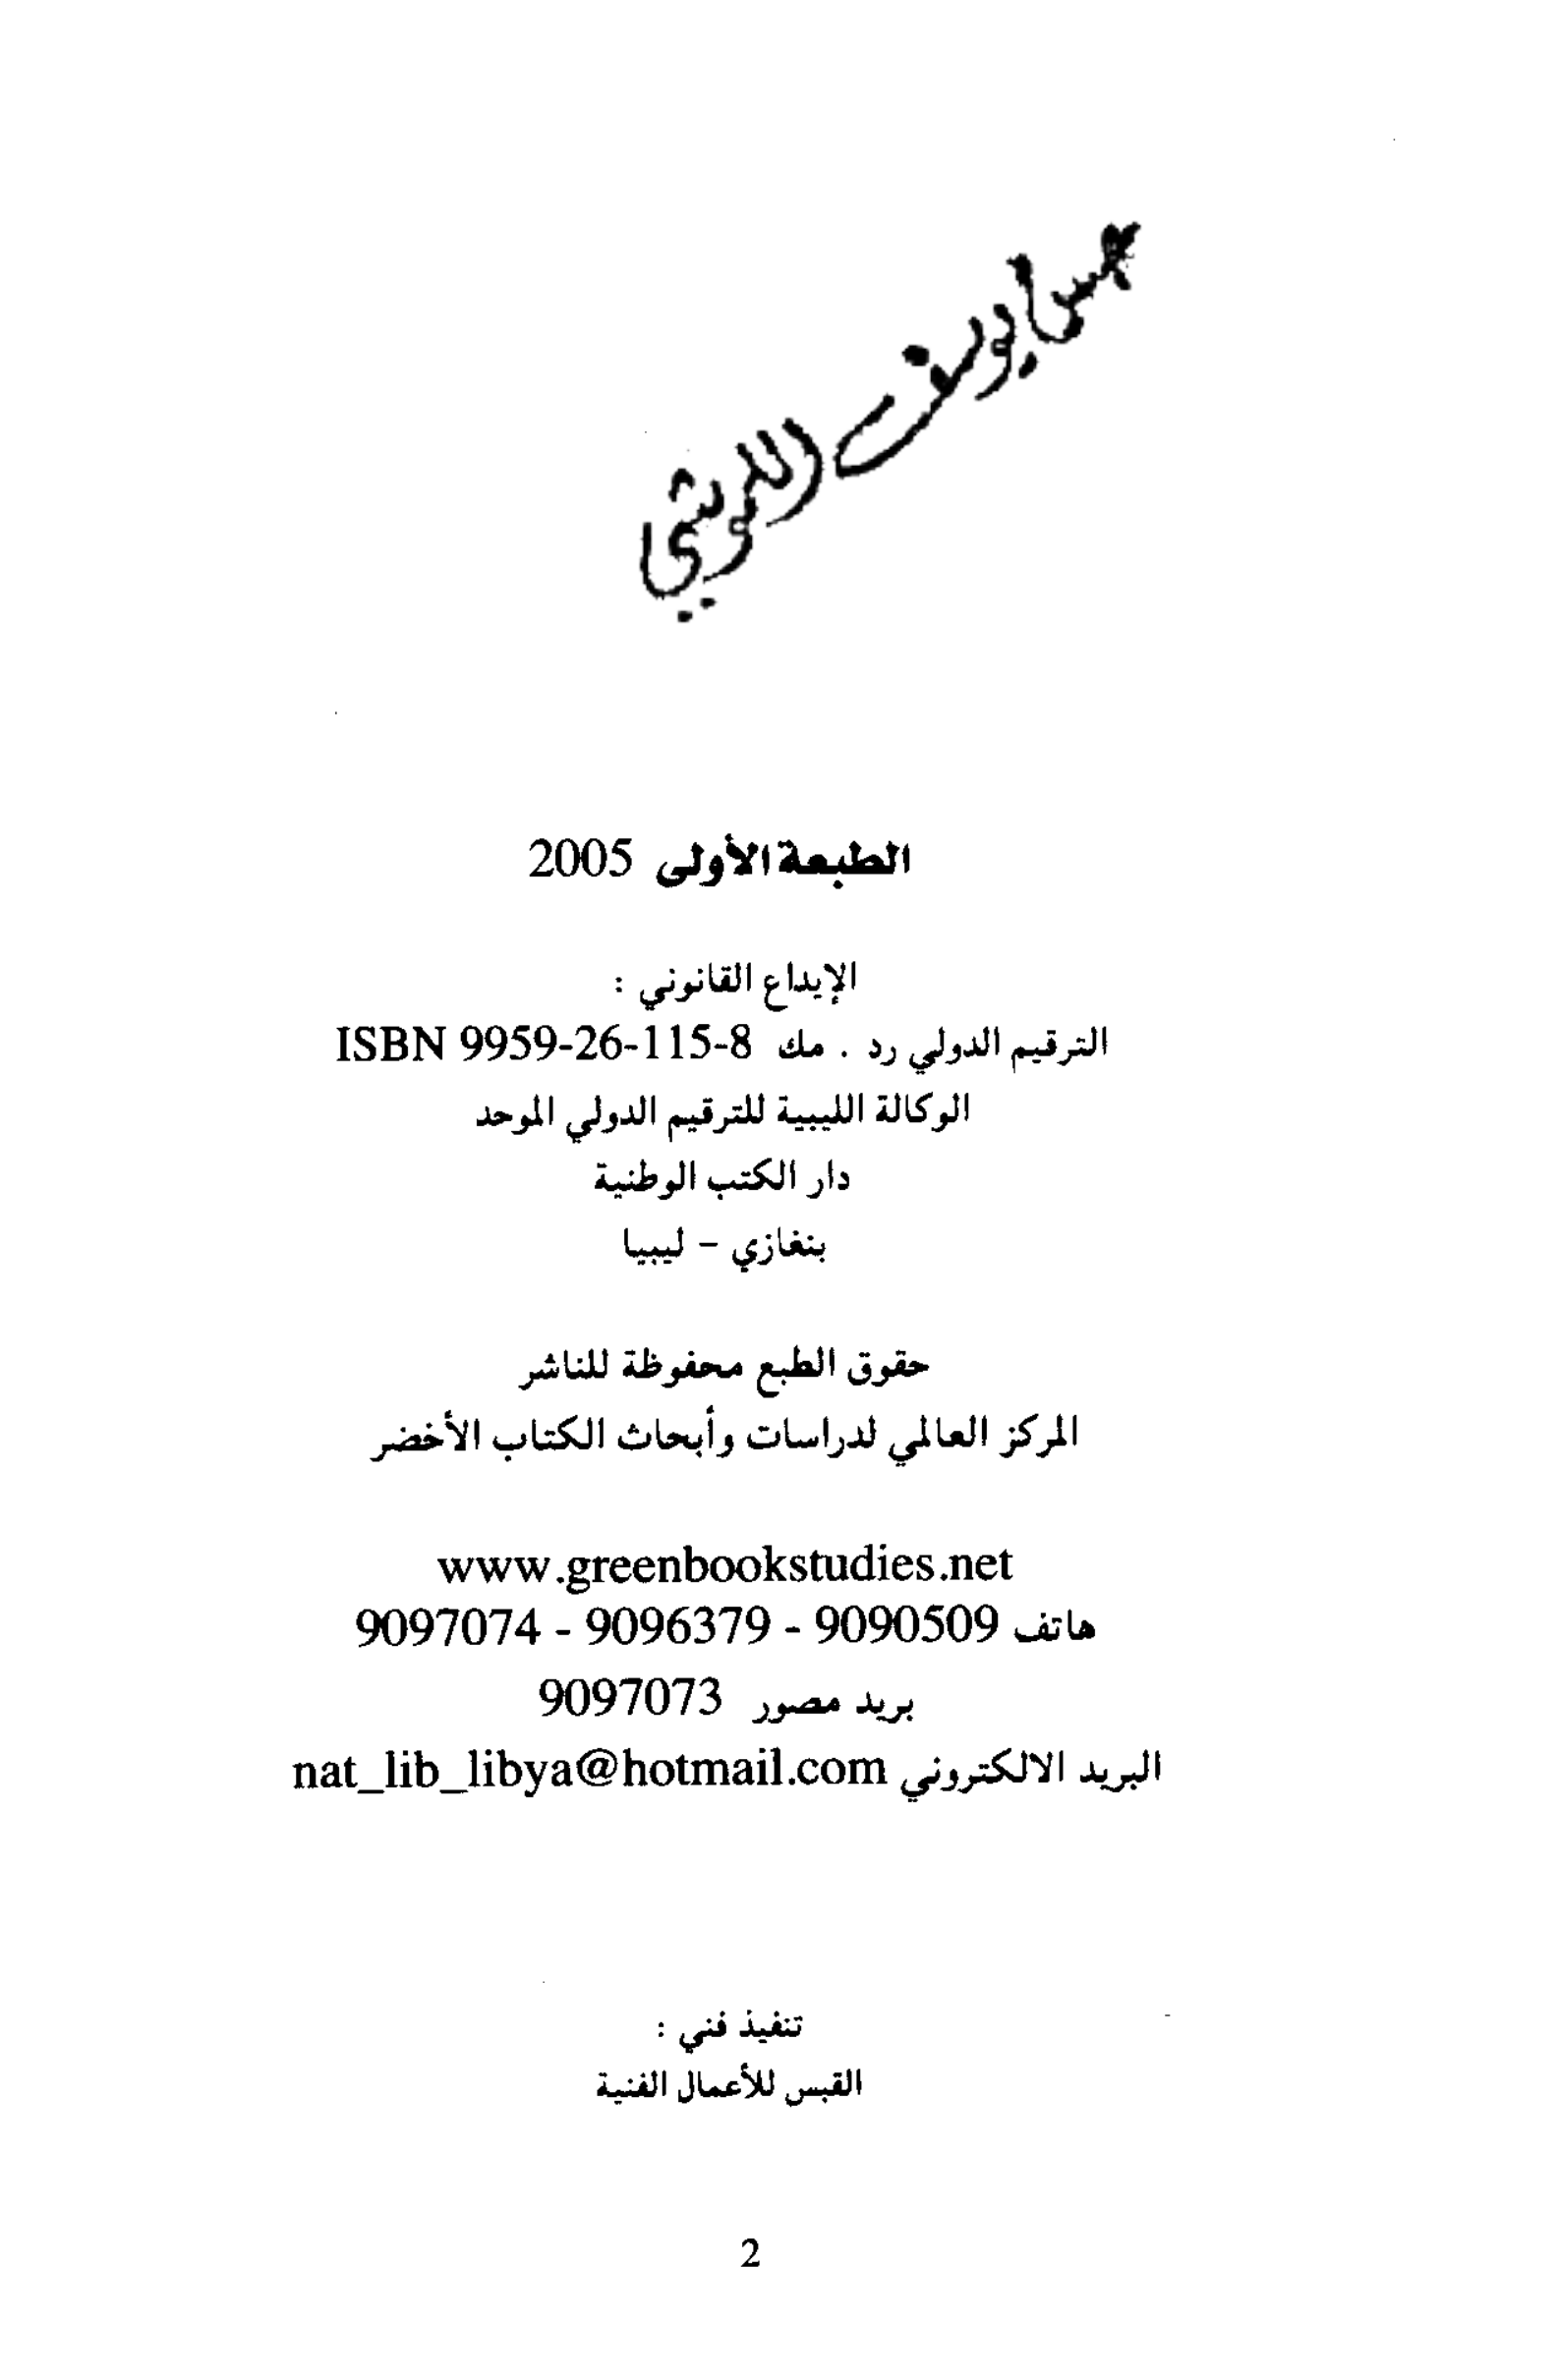 يوسف اللموشي
الطبعة الأولى 2005
الإيداع القانوني :
الترقيم الدولي رد . مك ISBN 9959-26-115-8
الوكالة الليبية للترقيم الدولي الموحد
دار الكتب الوطنية
بنغازي - ليبيا
حقوق الطبع محفوظة للناشر
المركز العالمي لدراسات وأبحاث الكتاب الأخضر
www.greenbookstudies.net
هاتف 9090509 - 9096379 - 9097074
بريد مصور 9097073
البريد الالكتروني nat_lib_libya@hotmail.com
تنفيذ فني :
القبس للأعمال الفنية
2